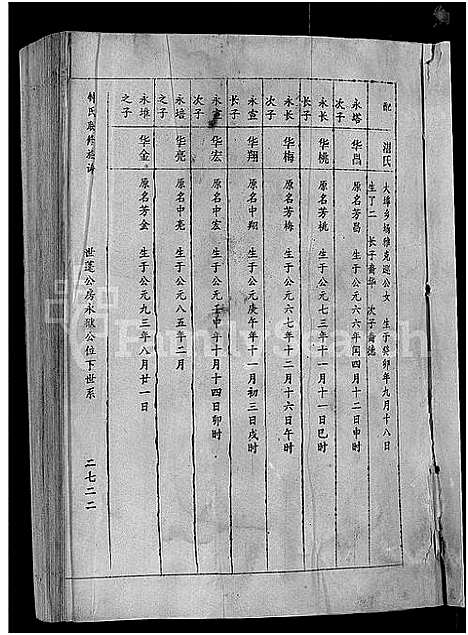 配 湛氏 大埠乡场雅克巡公女 生于癸卯年九月十八日
生丁二 长子裔华 次子裔德
永塔次子 华昌 原名芳昌 生于公元六六年闰四月十二日申时
永长长子 华桃 原名芳桃 生于公元六三年十一月十一日巳时
永长次子 华梅 原名芳梅 生于公元六七年十二月十六日午时
永查长子 华翔 原名中翔 生于公元庚午年十一月初三日戌时
永查次子 华宏 原名中宏 生于公元壬申十月十四日卯时
永培之子 华亮 原名中亮 生于公元八五年二月
永堆之子 华金 原名芳金 生于公元九三年八月廿一日
氏联修族谱 世蓬公房永猷公位下世系 二七二二
FamilySearch